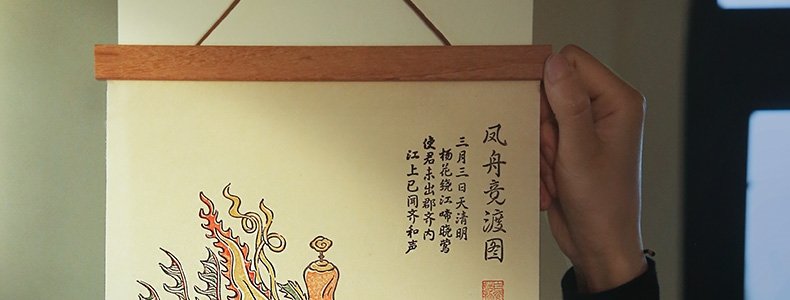 凤舟竞渡图
三月三日天清明
杨花绕江啼晓莺
使君未出郡齐内
江上已闻齐和声